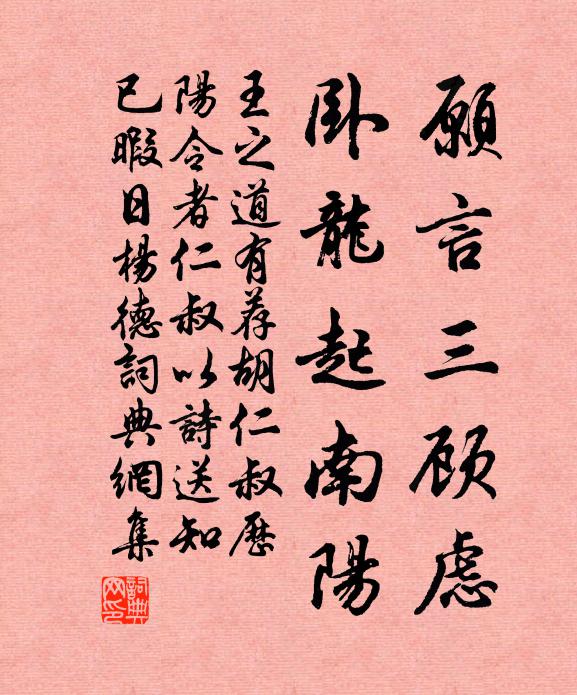 願言三顾慮
卧龍起南陽
王之道有荐胡仁叔歷
陽令者仁叔以詩送知
已暇日楊德詞典網集
詞典网印